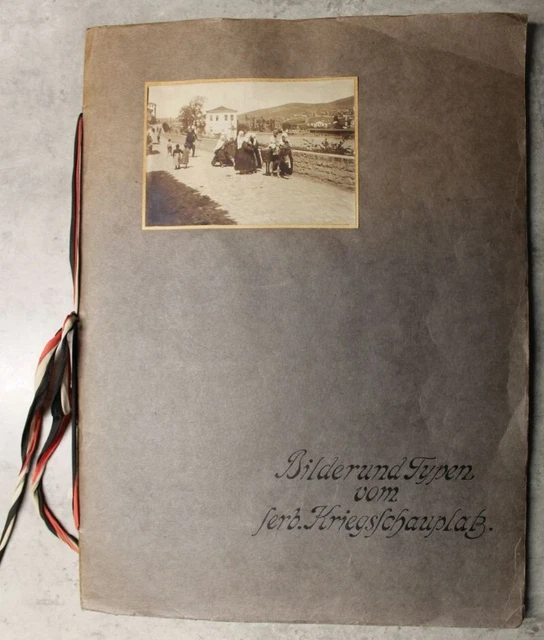 Bilder und Typen
vom
serb. Kriegsschauplatz.